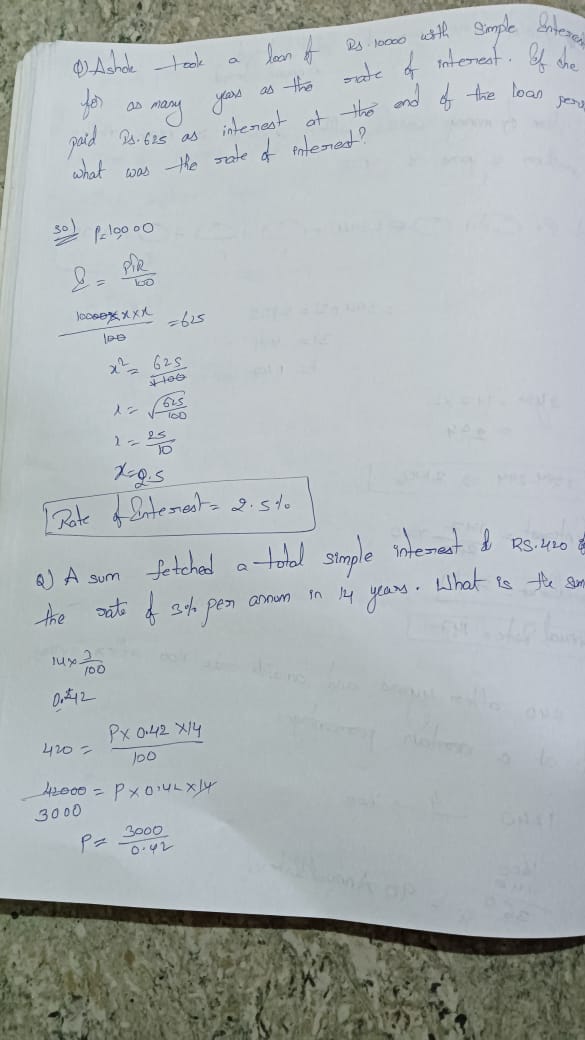 Q) Ashok took a loan of Rs. 10000 with Simple Interest
for as many years as the rate of interest. If she
paid Rs. 625 as interest at the end of the loan
what was the rate of interest?
Sol
P=10000
I = PTR/100
10000 x x x x/100 = 625
x² = 625/100
x = √625/100
x = 25/10
x = 2.5
Rate of Interest = 2.5%
Q) A sum fetched a total simple interest of RS.420 @
the rate of 3% per annum in 14 years. What is the sum
14 x 3/100
0.42
420 = P x 0.42 x 14/100
42000 = P x 0.42 x 14
3000
P = 3000/0.42